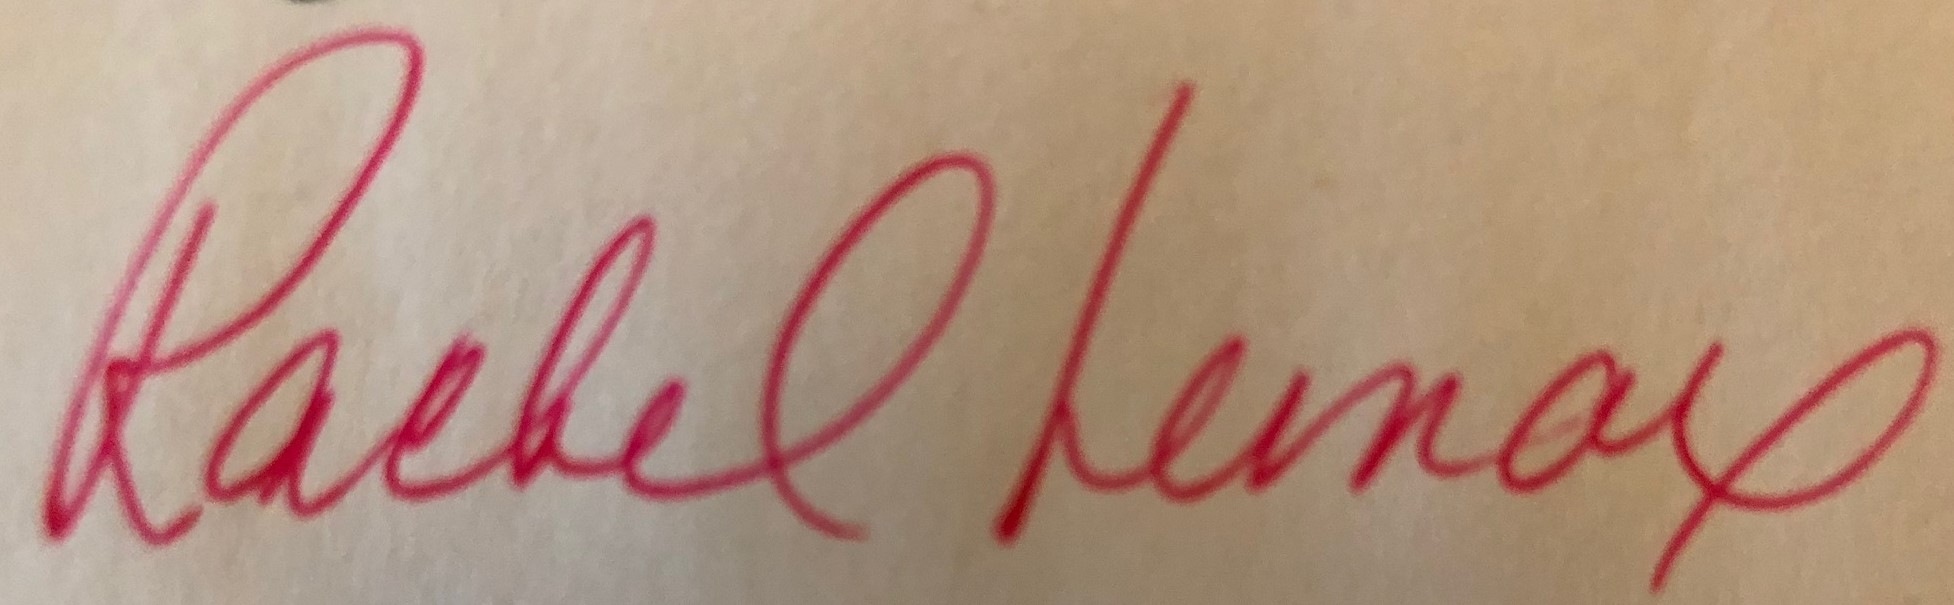 Rachel Lemox